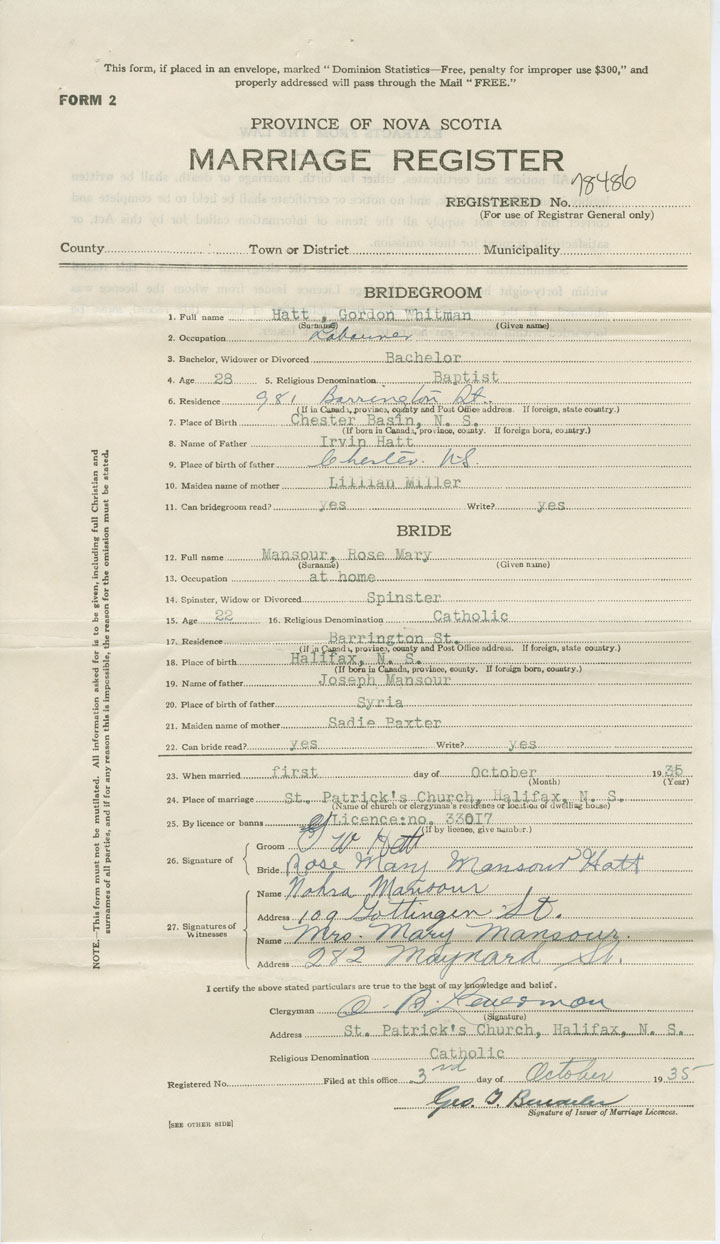 This form, if placed in an envelope, marked "Dominion Statistics—Free, penalty for improper use $300," and
properly addressed will pass through the Mail "FREE."
FORM 2
PROVINCE OF NOVA SCOTIA
MARRIAGE REGISTER
REGISTERED No. 78486
(For use of Registrar General only)
County Town or District Municipality
BRIDEGROOM
1. Full name Hatt, Gordon Whitman
(Surname) (Given name)
2. Occupation Labourer
3. Bachelor, Widower or Divorced Bachelor
4. Age 28 5. Religious Denomination Baptist
6. Residence 981 Barrington St.
(If in Canada, province, county and Post Office address. If foreign, state country.)
7. Place of Birth Chester Basin, N. S.
(If born in Canada, province, county. If foreign born, country.)
8. Name of Father Irvin Hatt
9. Place of birth of father Chester. N.S.
10. Maiden name of mother Lillian Miller
11. Can bridegroom read? yes Write? yes
BRIDE
12. Full name Mansour, Rose Mary
(Surname) (Given name)
13. Occupation at home
14. Spinster, Widow or Divorced Spinster
15. Age 22 16. Religious Denomination Catholic
17. Residence Barrington St.
(If in Canada, province, county and Post Office address. If foreign, state country.)
18. Place of birth Halifax, N. S.
(If born in Canada, province, county. If foreign born, country.)
19. Name of father Joseph Mansour
20. Place of birth of father Syria
21. Maiden name of mother Sadie Baxter
22. Can bride read? yes Write? yes
23. When married first day of October 1935
(Month) (Year)
24. Place of marriage St. Patrick's Church, Halifax, N. S.
(Name of church or clergyman's residence or location of dwelling house)
25. By licence or banns Licence no. 33017
(If by licence, give number.)
26. Signature of
Groom G W Hatt
Bride Rose Mary Mansour Hatt
27. Signatures of Witnesses
Name Nohra Mansour
Address 109 Gottingen St.
Name Mrs. Mary Mansour.
Address 282 Maynard St.
I certify the above stated particulars are true to the best of my knowledge and belief.
Clergyman
(Signature)
Address St. Patrick's Church, Halifax, N. S.
Religious Denomination Catholic
Registered No. Filed at this office 3rd day of October 1935
Geo.
Signature of Issuer of Marriage Licences.
[SEE OTHER SIDE]
NOTE.—This form must not be mutilated. All information asked for is to be given, including full Christian and
surnames of all parties, and if for any reason this is impossible, the reason for the omission must be stated.